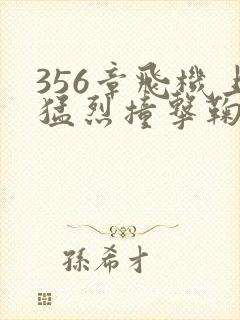 356章飛機上
猛烈撞擊鞠
孫希才